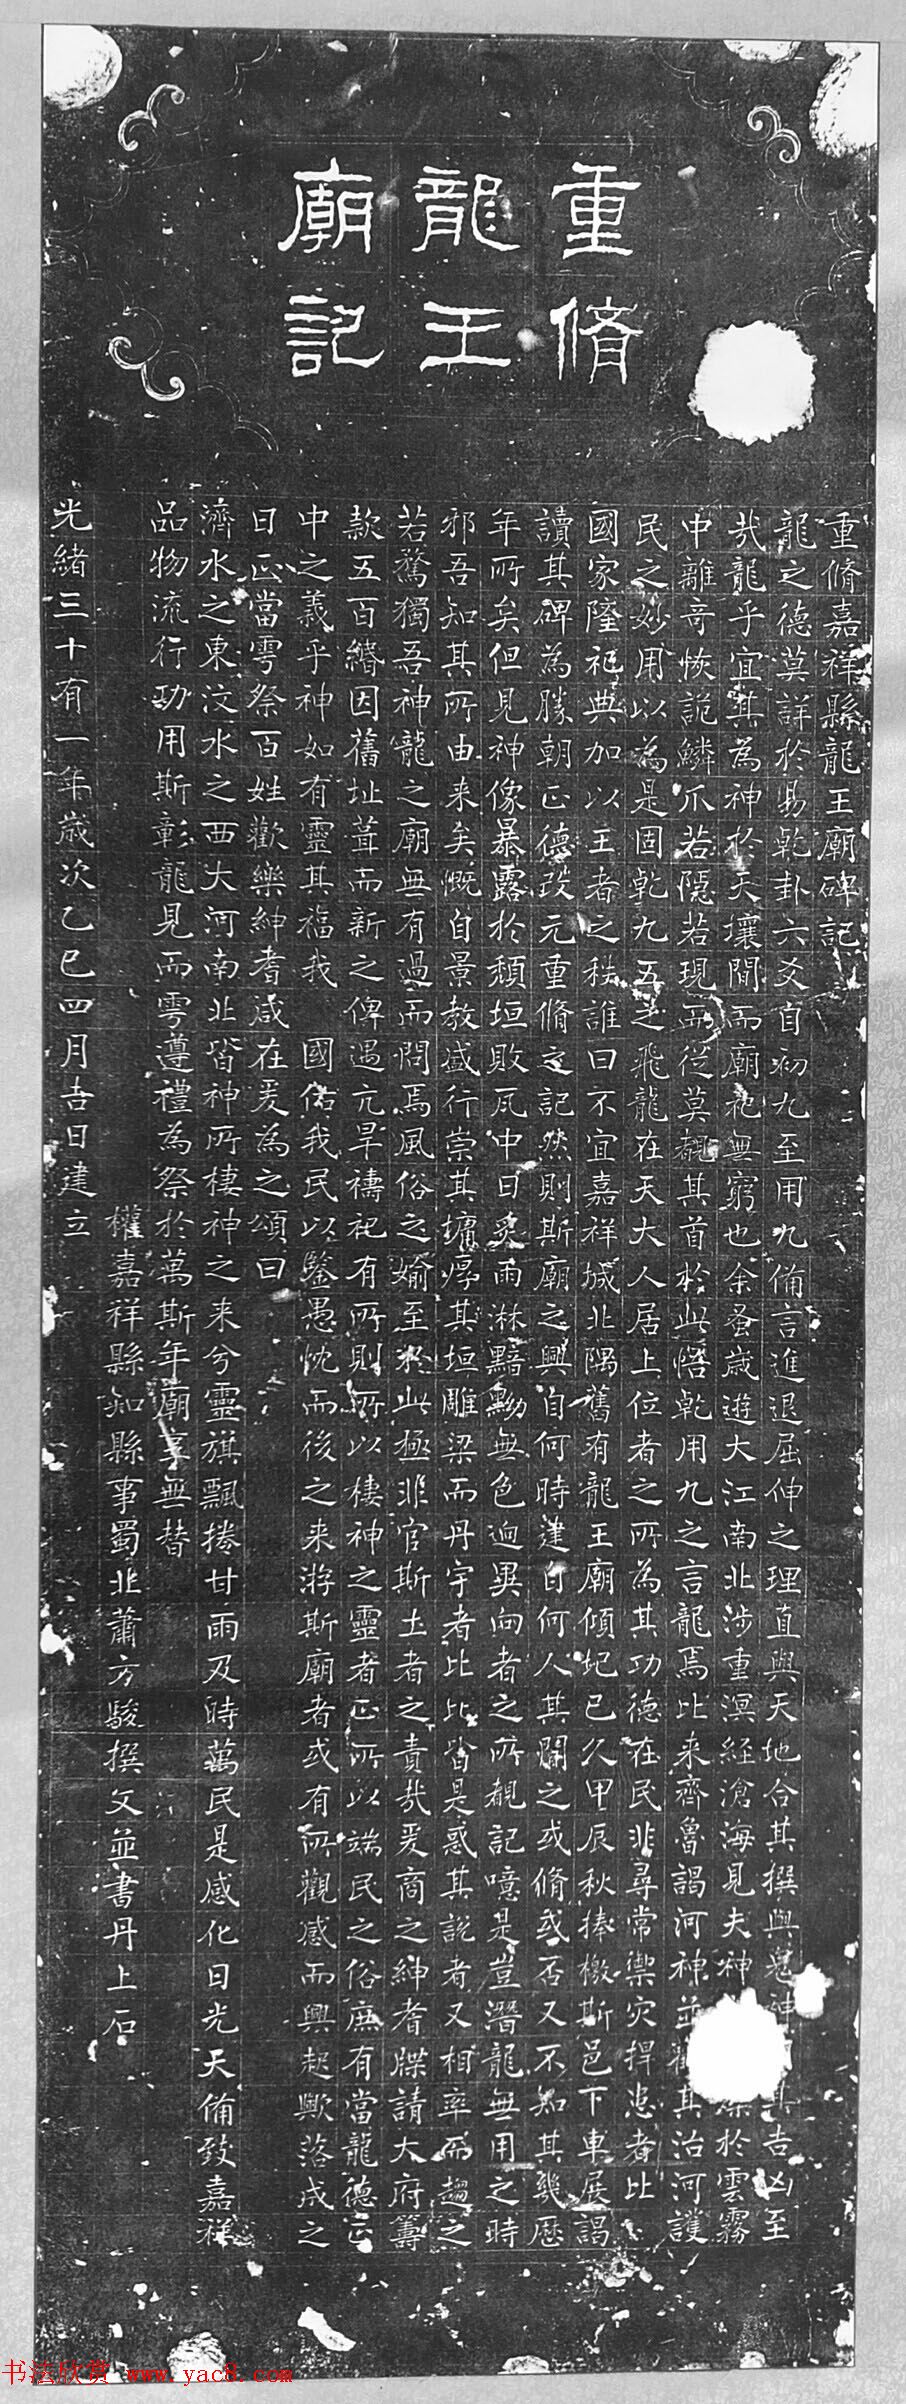 重脩
龍王
廟記
重脩嘉祥縣龍王廟碑記
龍之德莫詳於易乾卦六爻自初九至用九備言進退屈伸之理直與天地合其撰與鬼神其吉凶至
哉龍乎宜其為神於天壤間而廟祀無窮也余蚤歲遊大江南北涉重溟經滄海見夫神於雲霧
中離奇恢詭鱗爪若隱若現而從莫覩其首於此悟乾用九之言龍焉比来齊魯謁河神並其治河護
民之妙用以為是固乾九五之飛龍在天大人居上位者之所為其功德在民非尋常禦灾捍患者比
國家隆祀典加以王者之秩誰曰不宜嘉祥城北隅舊有龍王廟傾圮已久甲辰秋捧檄斯邑下車展謁
讀其碑為勝朝正德改元重脩之記然則斯廟之興自何時建自何人其閒之或脩或否又不知其幾歷
年所矣但見神像暴露於頹垣敗瓦中日炙雨淋黯黝無色迥異向者之所覩記噫是豈潛龍無用之時
邪吾知其所由来矣慨自景教盛行崇其墉厚其垣雕梁而丹宇者比比皆是惑其說者又相率而趨之
若騖獨吾神龍之廟無有過而問焉風俗之媮至於此極非官斯土者之責哉爰商之紳耆牒請大府籌
款五百緡因舊址葺而新之俾遇亢旱禱祀有所則所以棲神之靈者正所以端民之俗庶有當龍德正
中之義乎神如有靈其福我 國佑我民以鑒愚忱而後之来游斯廟者或有所觀感而興起歟落成之
日正當雩祭百姓歡樂紳耆咸在爰為之頌曰
濟水之東汶水之西大河南北皆神所棲神之来兮靈旗飄捲甘雨及時萬民是感化日光天備致嘉祥
品物流行功用斯彰龍見而雩遵禮為祭於萬斯年廟享無替
權嘉祥縣知縣事蜀北蕭方駿撰文並書丹上石
光緒三十有一年歲次乙巳四月吉日建立
书法欣赏 www.yac8.com